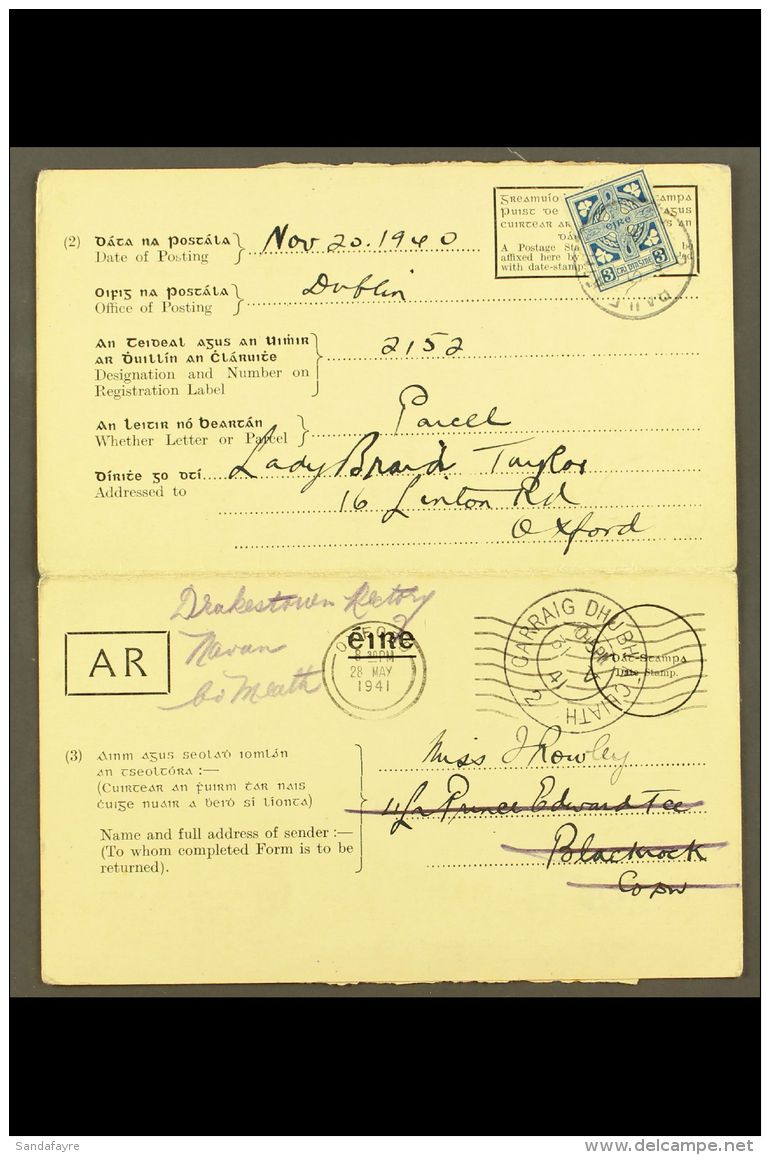 Greamuío
Puist de
cuirtear ar
A Postage Sta
affixed here by
with date-stamp
ampa
agus
an
be
éire
3 trí pingin 3
(2) Dáta na Postála
Date of Posting
Nov 20. 1940
Oifig na Postála
Office of Posting
Dublin
An Teideal agus an Uimhir
ar Dhuillín an Chláruithe
Designation and Number on
Registration Label
2152
An leitir nó beartán
Whether Letter or Parcel
Parcel
Dírithe go dtí
Addressed to
Lady Braid Taylor
16 Linton Rd
Oxford
Drakestown Rectory
Navan
Co Meath
AR
éire
OXFORD
8 30PM
28 MAY
1941
CARRAIG DHUBH
ATH CLIATH
2
41
Dát-Stampa
Date Stamp.
(3) Ainm agus seoladh iomlán
an tseoltóra :—
(Cuirtear an fhuirm thar nais
chuige nuair a bheidh sí líonta)
Name and full address of sender :—
(To whom completed Form is to be
returned).
Miss J Rowley
4/a Prince Edward Tce
Blackrock
Co Dn
Sandafayre
www.delcampe.net